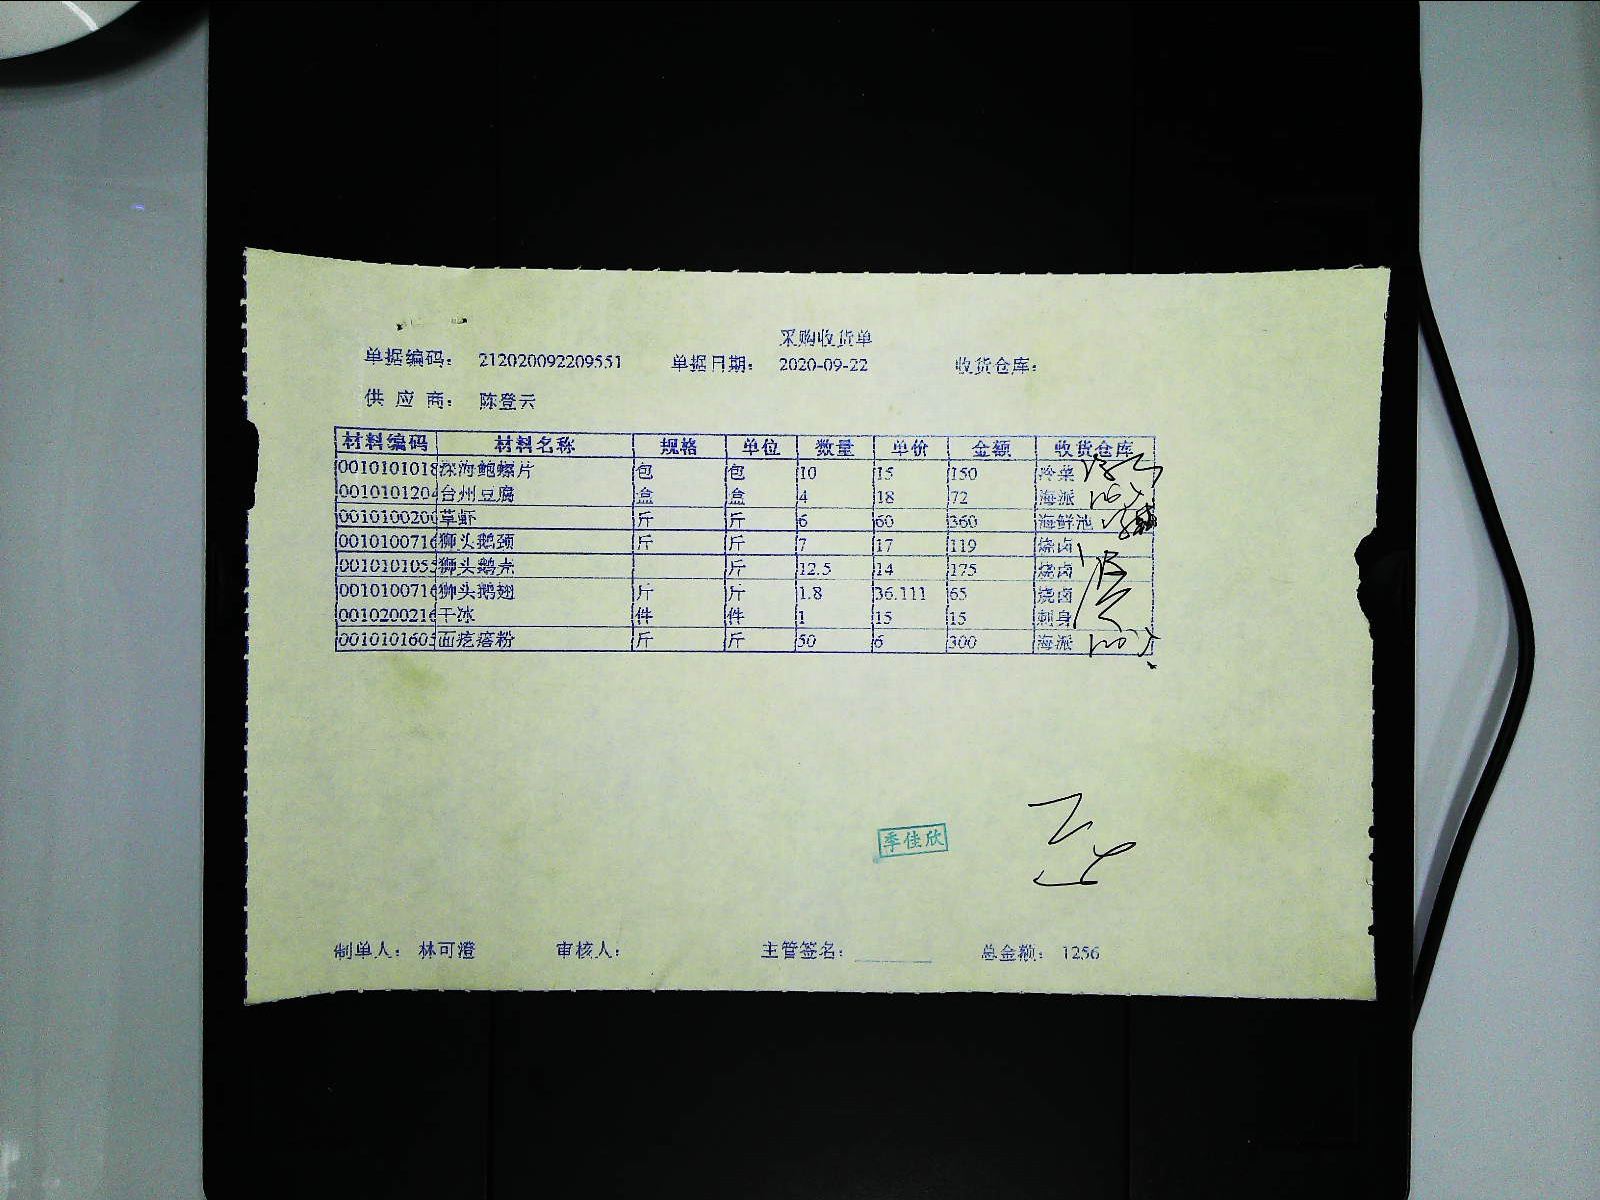 采购收货单
单据编码： 212020092209551 单据日期： 2020-09-22 收货仓库：
供 应 商： 陈登云
材料编码 材料名称 规格 单位 数量 单价 金额 收货仓库
0010101018 深海鲍螺片 包 包 10 15 150 冷菜
0010101204 台州豆腐 盒 盒 4 18 72 海派
0010100200 草虾 斤 斤 6 60 360 海鲜池
0010100716 狮头鹅颈 斤 斤 7 17 119 烧卤
0010101055 狮头鹅壳 斤 12.5 14 175 烧卤
0010100716 狮头鹅翅 斤 斤 1.8 36.111 65 烧卤
0010200216 干冰 件 件 1 15 15 刺身
0010101605 面疙瘩粉 斤 斤 50 6 300 海派
季佳欣
制单人： 林可澄 审核人： 主管签名： 总金额： 1256